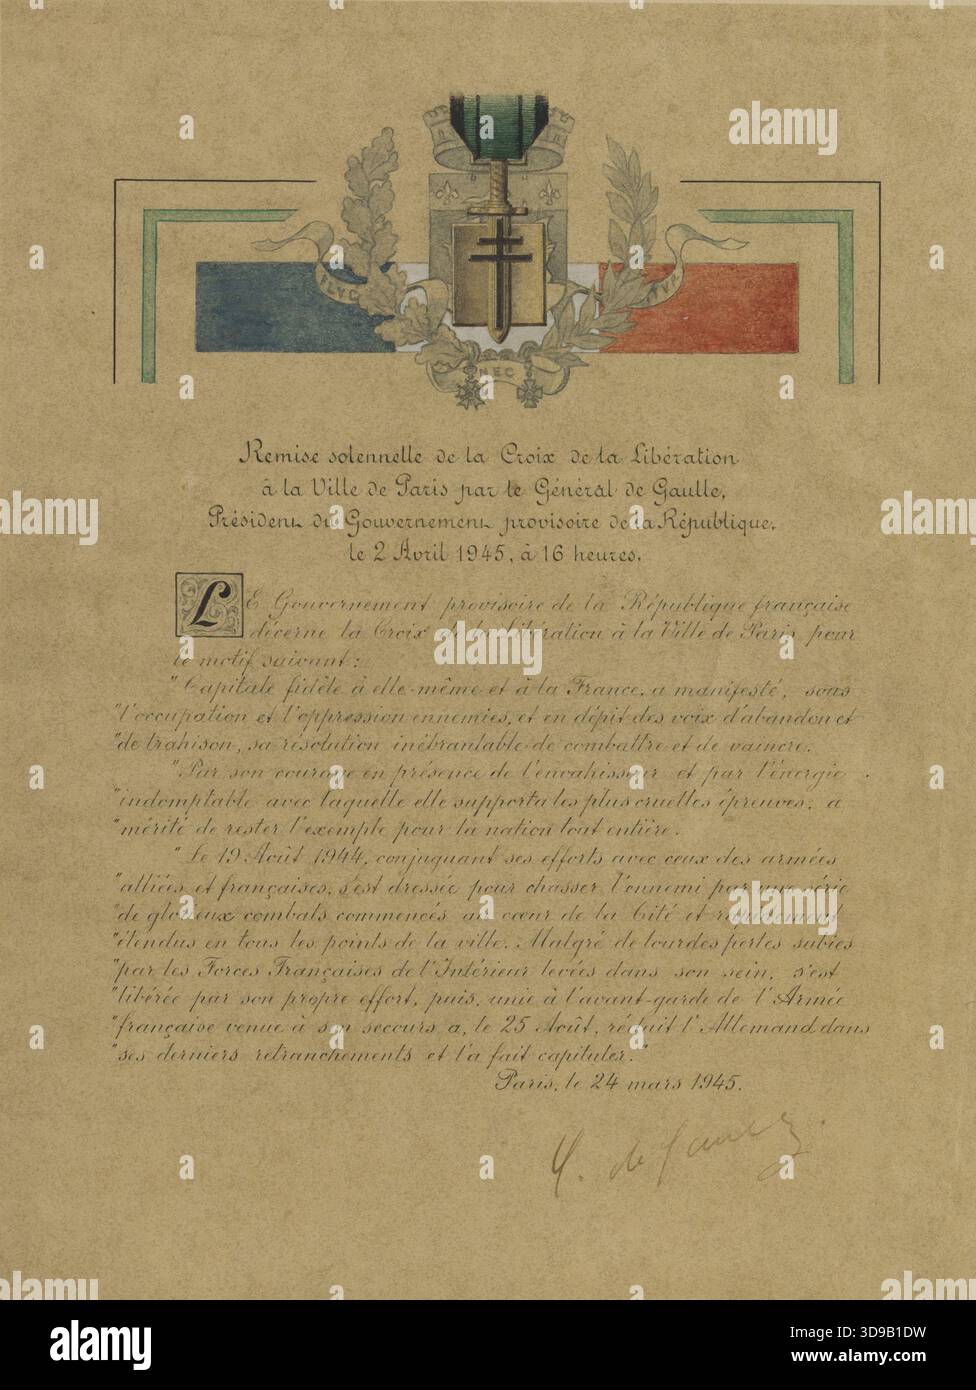 FLVC
NEC
Remise solennelle de la Croix de la Libération
à la Ville de Paris par le Général de Gaulle,
Président du Gouvernement provisoire de la République,
le 2 Avril 1945, à 16 heures.
LE Gouvernement provisoire de la République française
décerne la Croix de la Libération à la Ville de Paris pour
le motif suivant :
"Capitale fidèle à elle-même et à la France, a manifesté, sous
"l'occupation et l'oppression ennemies, et en dépit des voix d'abandon et
"de trahison, sa résolution inébranlable de combattre et de vaincre.
"Par son courage en présence de l'envahisseur et par l'énergie
"indomptable avec laquelle elle supporta les plus cruelles épreuves, a
"mérité de rester l'exemple pour la nation tout entière.
"Le 19 Août 1944, conjuguant ses efforts avec ceux des armées
"alliées et françaises, s'est dressée pour chasser l'ennemi par une série
"de glorieux combats commencés au cœur de la Cité et rapidement
"étendus en tous les points de la ville. Malgré de lourdes pertes subies
"par les Forces Françaises de l'Intérieur levées dans son sein, s'est
"libérée par son propre effort, puis, unie à l'avant-garde de l'Armée
"française venue à son secours a, le 25 Août, réduit l'Allemand dans
"ses derniers retranchements et l'a fait capituler."
Paris, le 24 mars 1945.
C. de Gaulle
alamy
alamy
alamy
alamy
a
a
alamy
Image ID: 3D9B1DW
www.alamy.com